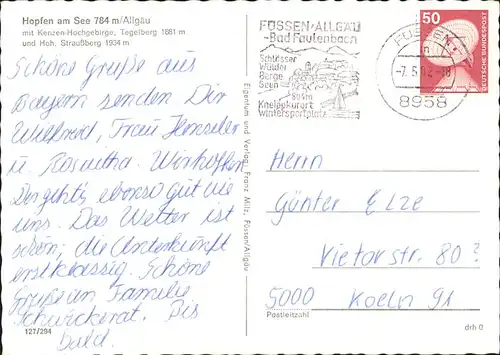 Hopfen am See 784 m/Allgäu
mit Kenzen-Hochgebirge, Tegelberg 1881 m
und Hoh. Straußberg 1934 m
Schöne Grüße aus
Bayern senden Dir
Wiltrud, Frau Henseler
u. Roswitha. Wir hoffen
Dir geht's ebenso gut wie
uns. Das Wetter ist
schön, die Unterkunft
erstklassig. Schöne
Grüße an Familie
Bis
bald.
127/294
Eigentum und Verlag: Franz Milz, Füssen/Allgäu
FÜSSEN/ALLGÄU
-Bad Faulenbach
Schlösser
Wälder
Berge
Seen
804m
Kneippkurort
Wintersportplatz
FÜSSEN
8958
50
Herrn
Günter Elze
Vietorstr. 80?
5000 Koeln 91
Postleitzahl
drh 0